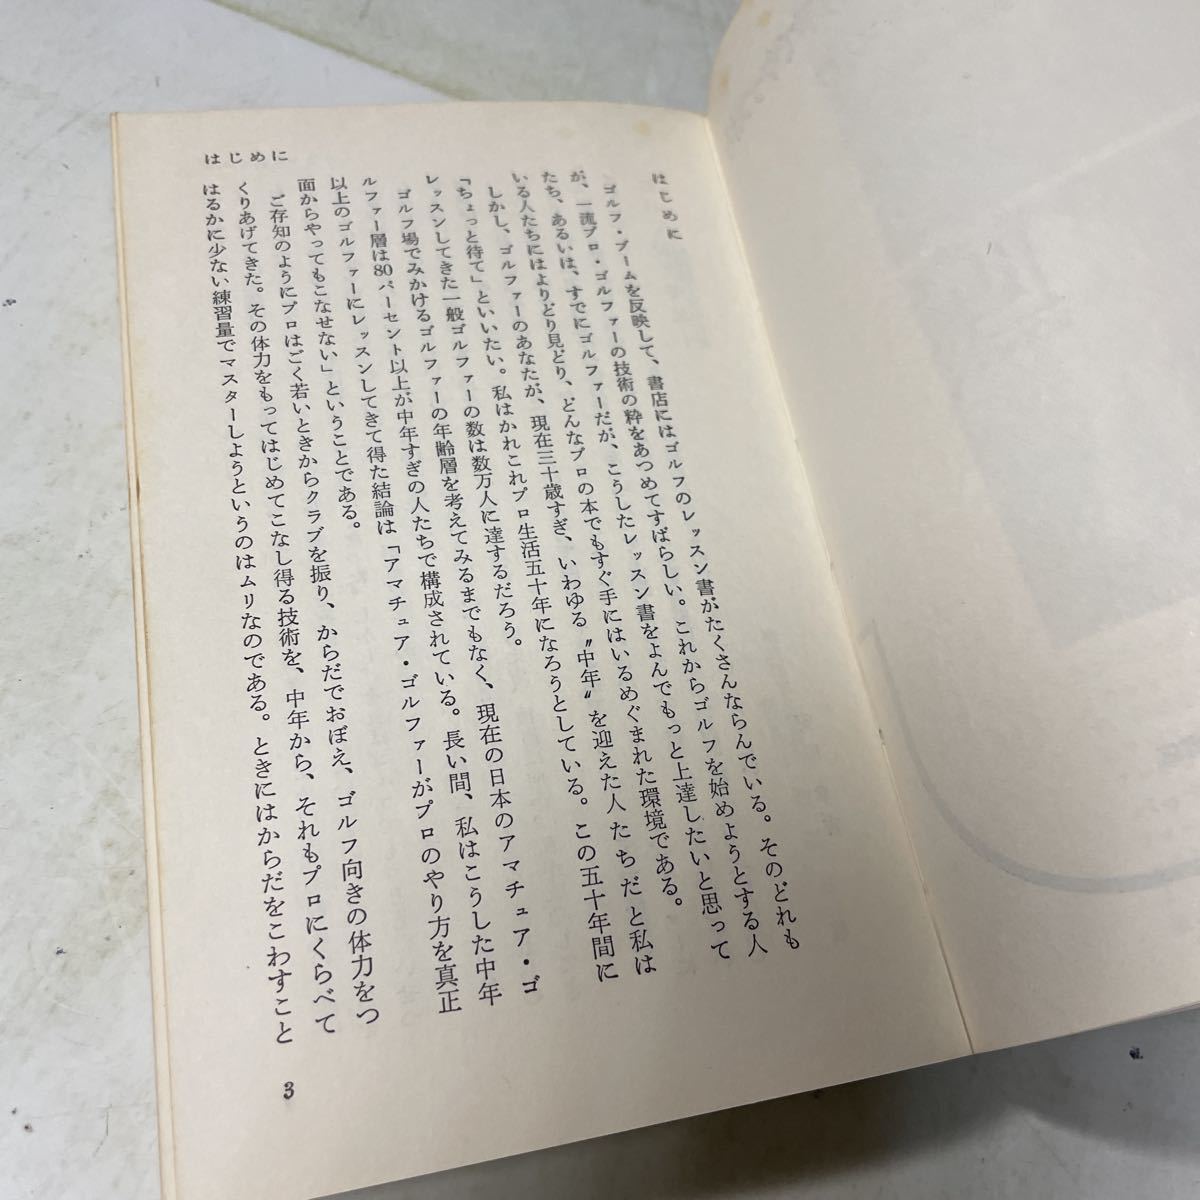 はじめに
はじめに
ゴルフ・ブームを反映して、書店にはゴルフのレッスン書がたくさんならんでいる。そのどれも
が、一流プロ・ゴルファーの技術の粋をあつめてすばらしい。これからゴルフを始めようとする人
たち、あるいは、すでにゴルファーだが、こうしたレッスン書をよんでもっと上達したいと思って
いる人たちにはよりどり見どり、どんなプロの本でもすぐ手にはいるめぐまれた環境である。
しかし、ゴルファーのあなたが、現在三十歳すぎ、いわゆる〝中年〟を迎えた人たちだと私は
「ちょっと待て」といいたい。私はかれこれプロ生活五十年になろうとしている。この五十年間に
レッスンしてきた一般ゴルファーの数は数万人に達するだろう。
ゴルフ場でみかけるゴルファーの年齢層を考えてみるまでもなく、現在の日本のアマチュア・ゴ
ルファー層は80パーセント以上が中年すぎの人たちで構成されている。長い間、私はこうした中年
以上のゴルファーにレッスンしてきて得た結論は「アマチュア・ゴルファーがプロのやり方を真正
面からやってもこなせない」ということである。
ご存知のようにプロはごく若いときからクラブを振り、からだでおぼえ、ゴルフ向きの体力をつ
くりあげてきた。その体力をもってはじめてこなし得る技術を、中年から、それもプロにくらべて
はるかに少ない練習量でマスターしようというのはムリなのである。ときにはからだをこわすこと
3